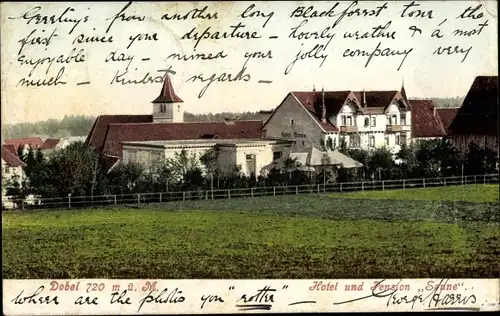 Greetings from another long Blackforest tour, the
first since your departure – Lovely weather & a most
enjoyable day – missed your jolly company very
much – Kindest regards –
HOTEL SONNE
Dobel 720 m ü. M.
Hotel und Pension „Sonne".
Where are the phlis you "rotter" – George Harris.